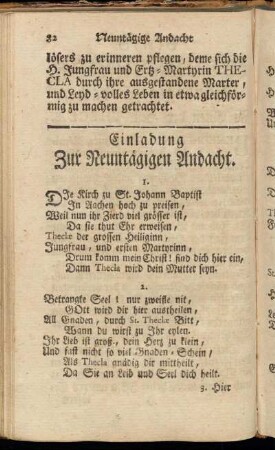 82 Neuntägige Andacht
lösers zu erinneren pflegen, deme sich die
H. Jungfrau und Ertz-Martyrin THE-
CLA durch ihre ausgestandene Marter,
und Leyd-volles Leben in etwa gleichför-
mig zu machen getrachtet.
Einladung
Zur Neuntägigen Andacht.
1.
DJe Kirch zu St. Johann Baptist
Jn Aachen hoch zu preisen,
Weil nun ihr Zierd viel grösser ist,
Da sie thut Ehr erweisen,
Thecle der grossen Heiliginn,
Jungfrau, und ersten Martyrinn,
Drum komm mein Christ! find dich hier ein,
Dann Thecla wird dein Mutter seyn.
2.
Betrangte Seel! nur zweifle nit,
GOtt wird dir hier austheilen,
All Gnaden, durch St. Thecle Bitt,
Wann du wirst zu Jhr eylen.
Jhr Lieb ist groß, dein Hertz zu klein,
Und fast nicht so viel Gnaden-Schein,
Als Thecla gnädig dir mittheilt,
Da Sie an Leib und Seel dich heilt.
3. Hier